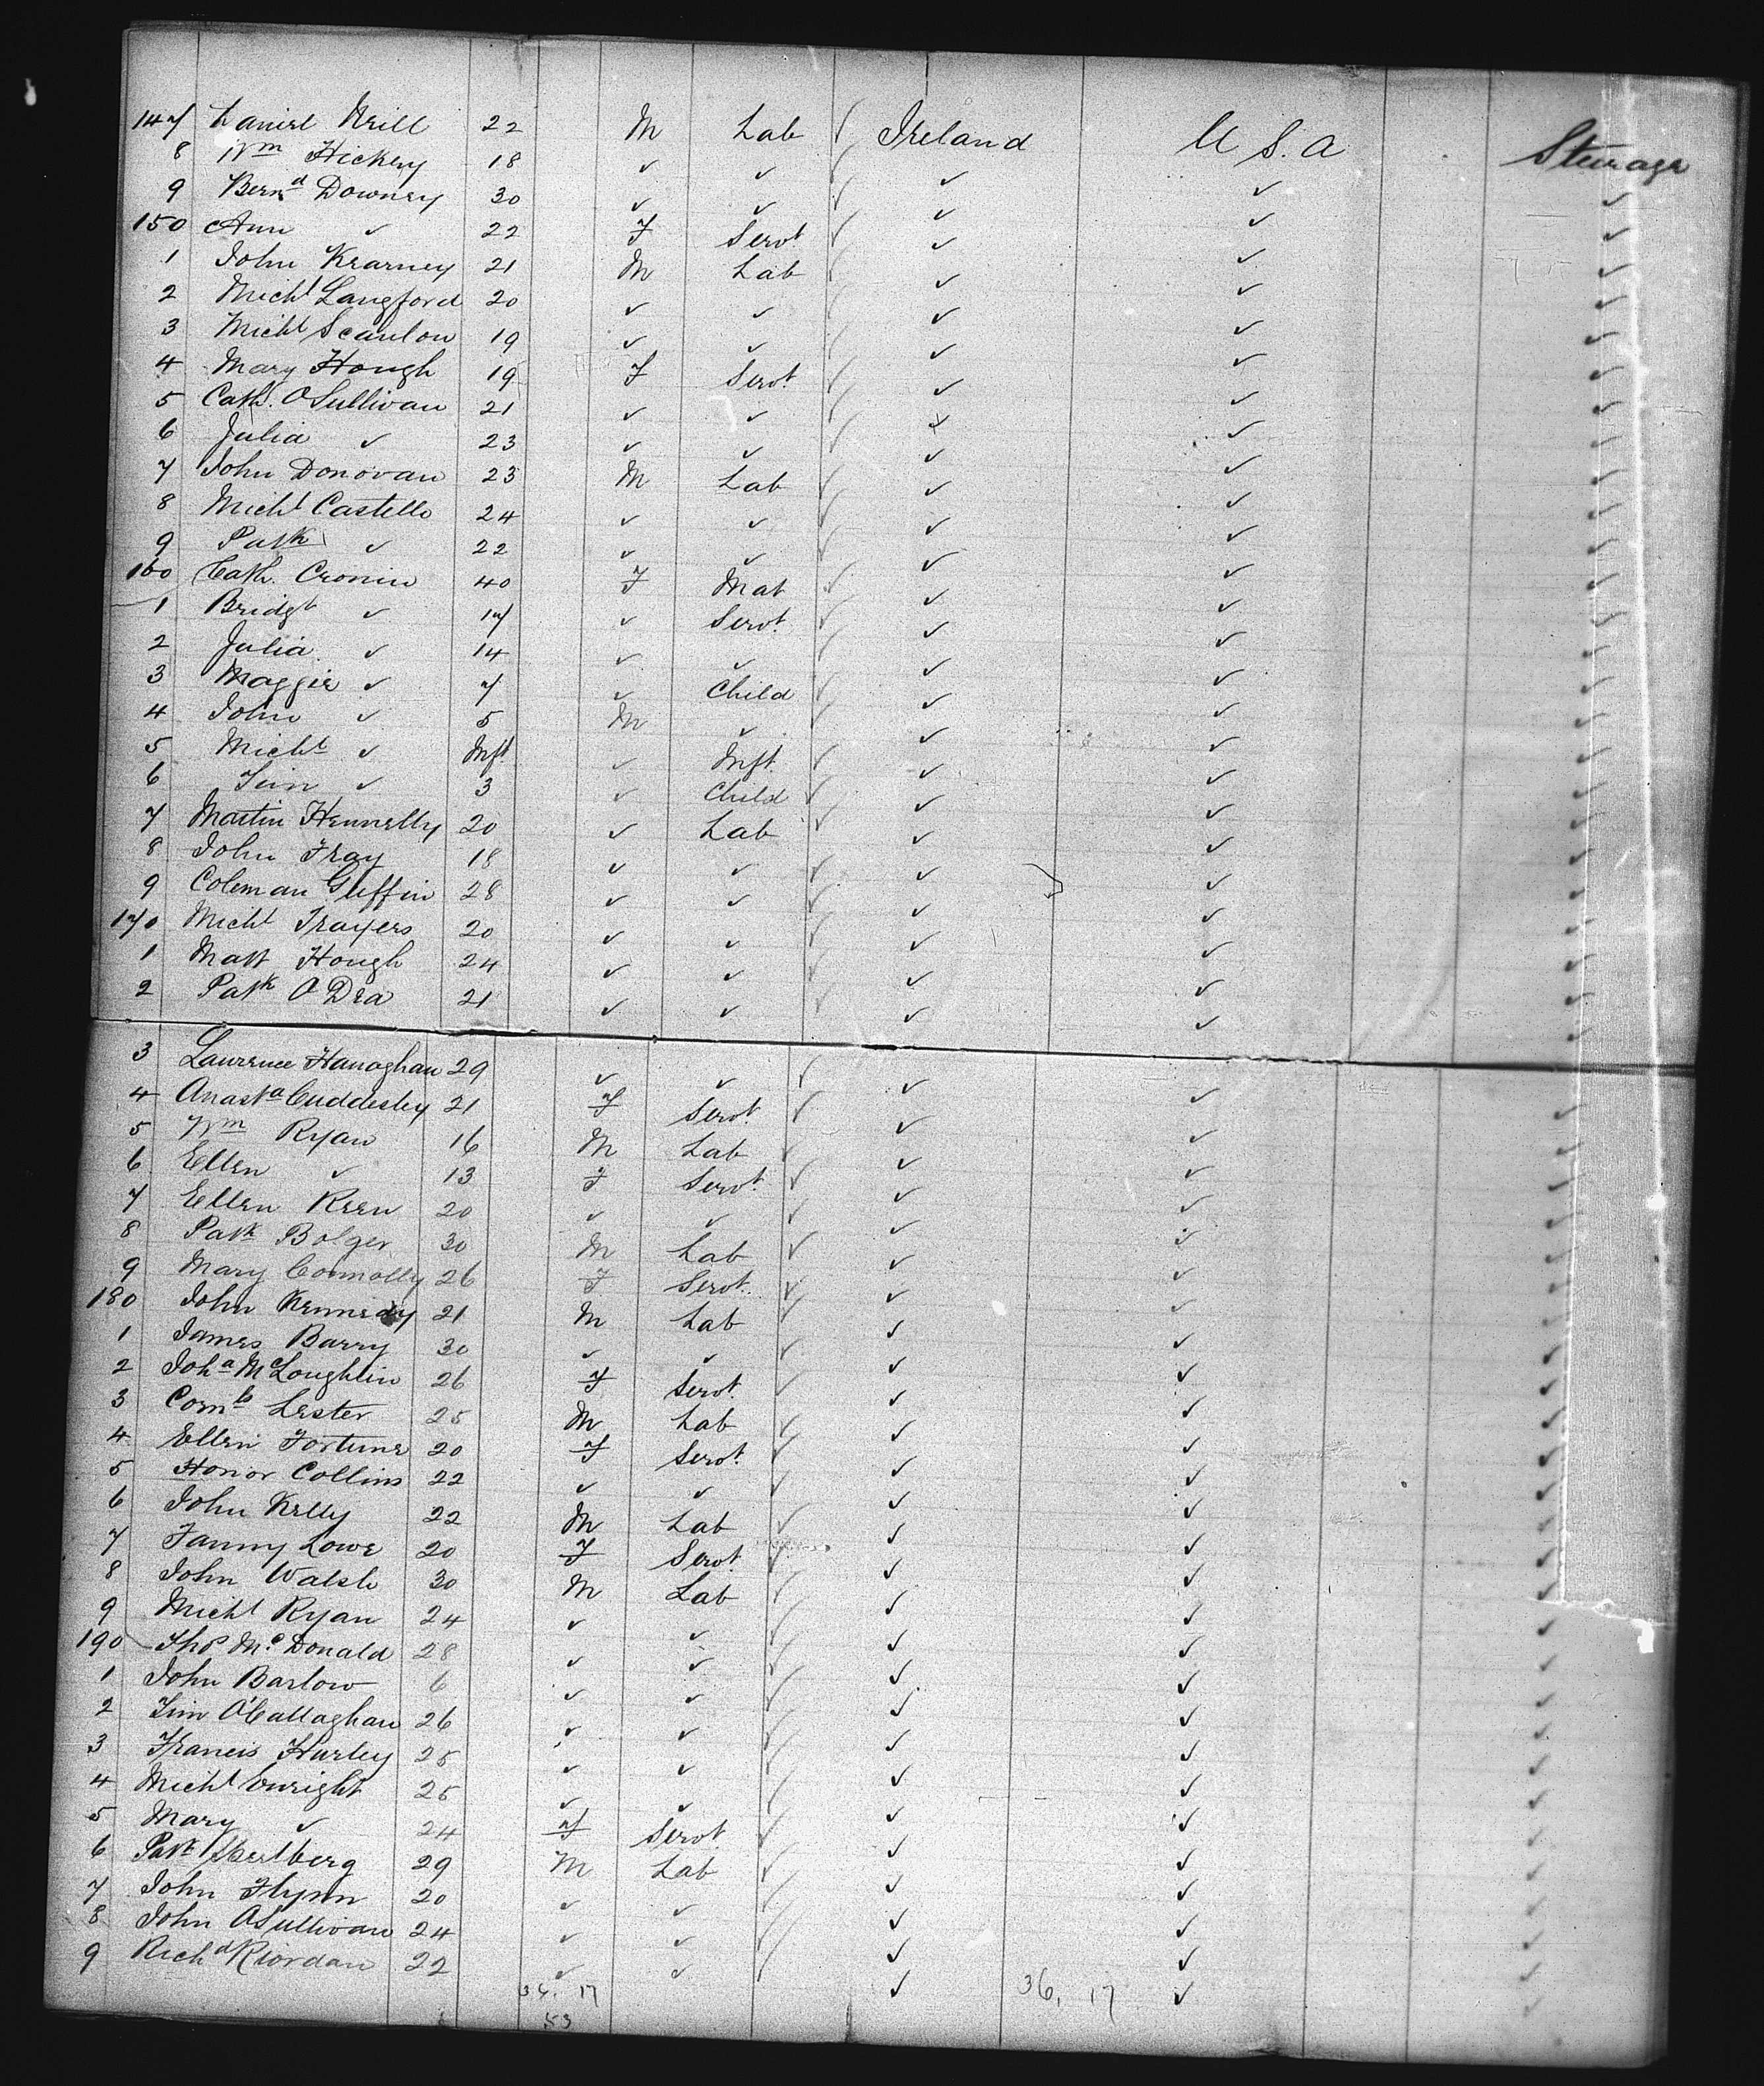 147 Daniel Neill 22 M Lab Ireland U S. A Steerage
8 Wm Hickey 18 ✓ ✓ ✓ ✓ ✓
9 Bernd Downey 30 ✓ ✓ ✓ ✓ ✓
150 Ann ✓ 22 F Servt ✓ ✓ ✓
1 John Kearney 21 M Lab ✓ ✓ ✓
2 Michl Langford 20 ✓ ✓ ✓ ✓ ✓
3 Michl Scanlon 19 ✓ ✓ ✓ ✓ ✓
4 Mary Hough 19 F Servt ✓ ✓ ✓
5 Cath. O'Sullivan 21 ✓ ✓ ✓ ✓ ✓
6 Julia ✓ 23 ✓ ✓ ✓ ✓ ✓
7 John Donovan 23 M Lab ✓ ✓ ✓
8 Michl Castello 24 ✓ ✓ ✓ ✓ ✓
9 Patk ✓ 22 ✓ ✓ ✓ ✓ ✓
160 Cath. Cronin 40 F Mat ✓ ✓ ✓
1 Bridgt ✓ 17 ✓ Servt. ✓ ✓ ✓
2 Julia ✓ 14 ✓ ✓ ✓ ✓ ✓
3 Maggie ✓ 7 ✓ Child ✓ ✓ ✓
4 John ✓ 5 M ✓ ✓ ✓ ✓
5 Michl ✓ Inft ✓ Inft. ✓ ✓ ✓
6 Tim ✓ 3 ✓ Child ✓ ✓ ✓
7 Martin Hennelly 20 ✓ Lab ✓ ✓ ✓
8 John Fray 18 ✓ ✓ ✓ ✓ ✓
9 Coleman Griffin 28 ✓ ✓ ✓ ✓ ✓
170 Michl Trayers 20 ✓ ✓ ✓ ✓ ✓
1 Matt Hough 24 ✓ ✓ ✓ ✓ ✓
2 Patk O Dea 21 ✓ ✓ ✓ ✓ ✓
3 Lawrence Hanaghan 29 ✓ ✓ ✓ ✓ ✓
4 Anasta Cuddeshy 21 F Servt. ✓ ✓ ✓
5 Wm Ryan 16 M Lab ✓ ✓ ✓
6 Ellen ✓ 13 F Servt. ✓ ✓ ✓
7 Ellen Keen 20 ✓ ✓ ✓ ✓ ✓
8 Patk Bolger 30 M Lab ✓ ✓ ✓
9 Mary Connolly 26 F Servt. ✓ ✓ ✓
180 John Kennedy 21 M Lab ✓ ✓ ✓
1 James Barry 30 ✓ ✓ ✓ ✓ ✓
2 Joha McLoughlin 26 F Servt. ✓ ✓ ✓
3 Corns Lester 25 M Lab ✓ ✓ ✓
4 Ellen Fortune 20 F Servt. ✓ ✓ ✓
5 Honor Collins 22 ✓ ✓ ✓ ✓ ✓
6 John Kelly 22 M Lab ✓ ✓ ✓
7 Fanny Lowe 20 F Servt. ✓ ✓ ✓
8 John Walsh 30 M Lab ✓ ✓ ✓
9 Michl Ryan 24 ✓ ✓ ✓ ✓ ✓
190 Thos McDonald 28 ✓ ✓ ✓ ✓ ✓
1 John Barlow 6 ✓ ✓ ✓ ✓ ✓
2 Tim O'Callaghan 26 ✓ ✓ ✓ ✓ ✓
3 Francis Hurley 25 ✓ ✓ ✓ ✓ ✓
4 Michl Enright 25 ✓ ✓ ✓ ✓ ✓
5 Mary ✓ 24 F Servt ✓ ✓ ✓
6 Patk 29 M Lab ✓ ✓ ✓
7 John Flynn 20 ✓ ✓ ✓ ✓ ✓
8 John O'Sullivan 24 ✓ ✓ ✓ ✓ ✓
9 Richd Riordan 22 ✓ ✓ ✓ ✓ ✓
36. 17 36, 17
53